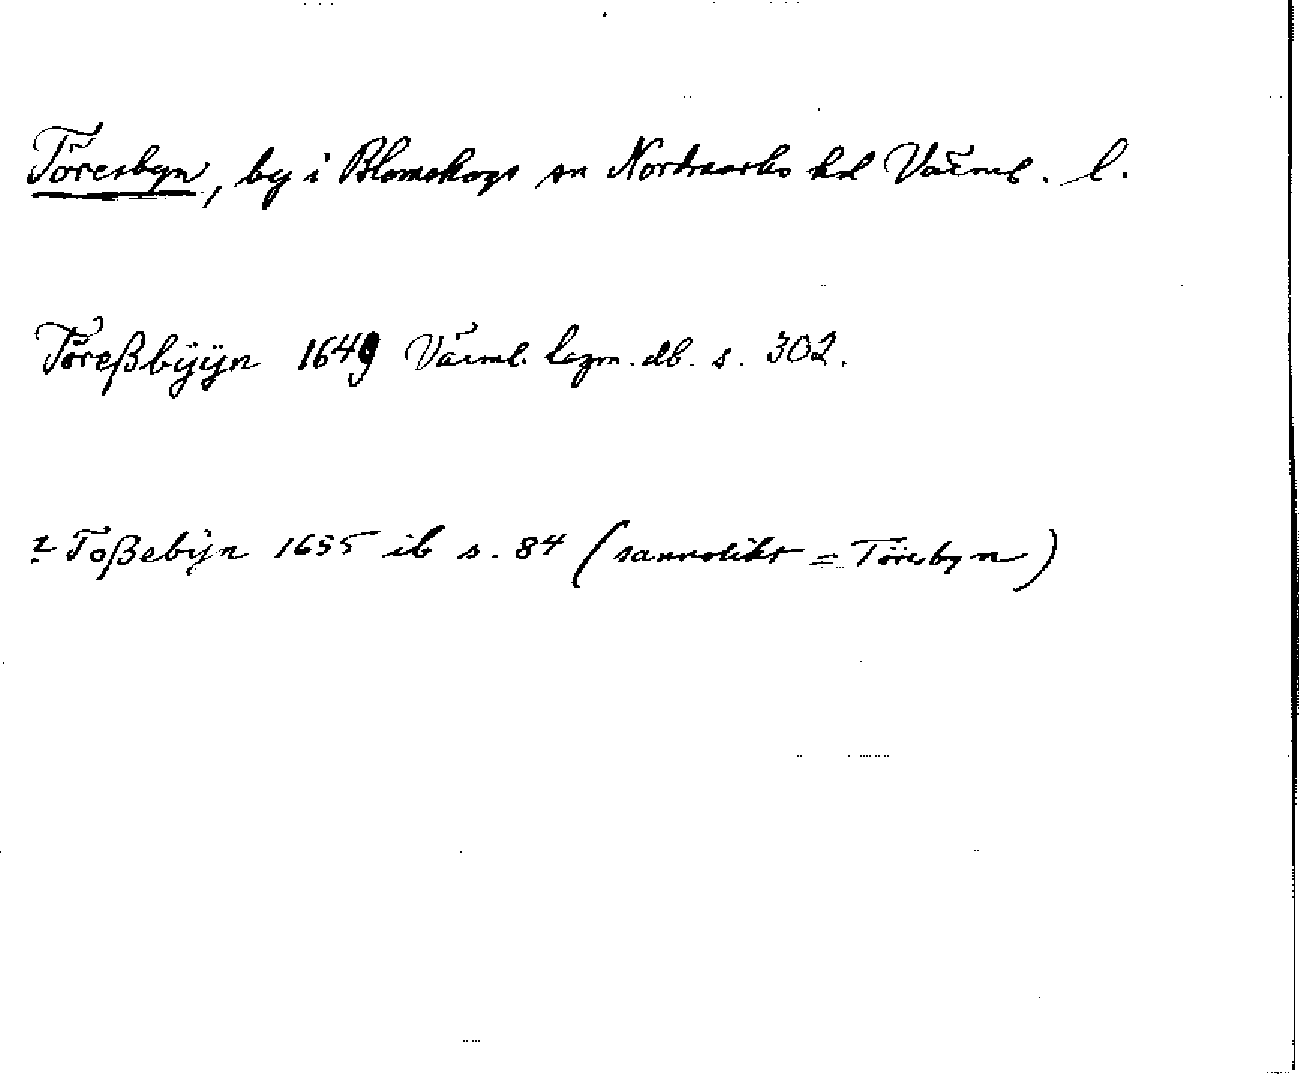 Töresbyn, by i Blomskogs sn Nordmarks hd Värml. l.
Töreßbÿÿn 1649 Värml. lagm. db. s. 302.
? Toßebÿn 1655 ib s. 84 (sannolikt = Töresbyn)